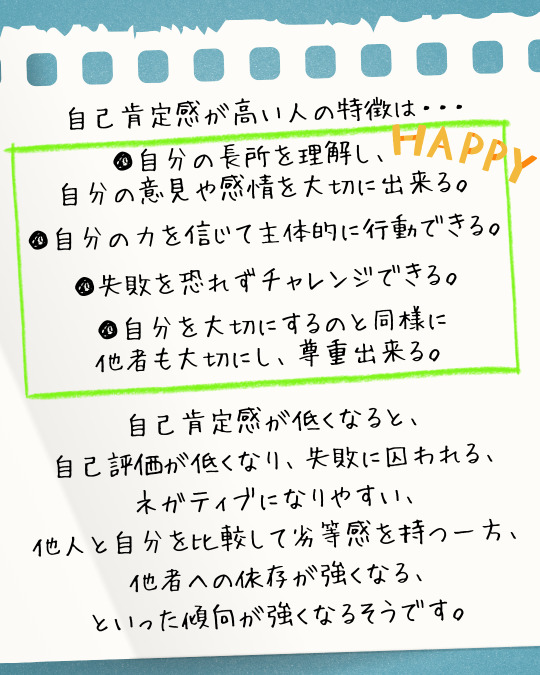 自己肯定感が高い人の特徴は・・・
HAPPY
●自分の長所を理解し、
自分の意見や感情を大切に出来る。
●自分の力を信じて主体的に行動できる。
●失敗を恐れずチャレンジできる。
●自分を大切にするのと同様に
他者も大切にし、尊重出来る。
自己肯定感が低くなると、
自己評価が低くなり、失敗に囚われる、
ネガティブになりやすい、
他人と自分を比較して劣等感を持つ一方、
他者への依存が強くなる、
といった傾向が強くなるそうです。